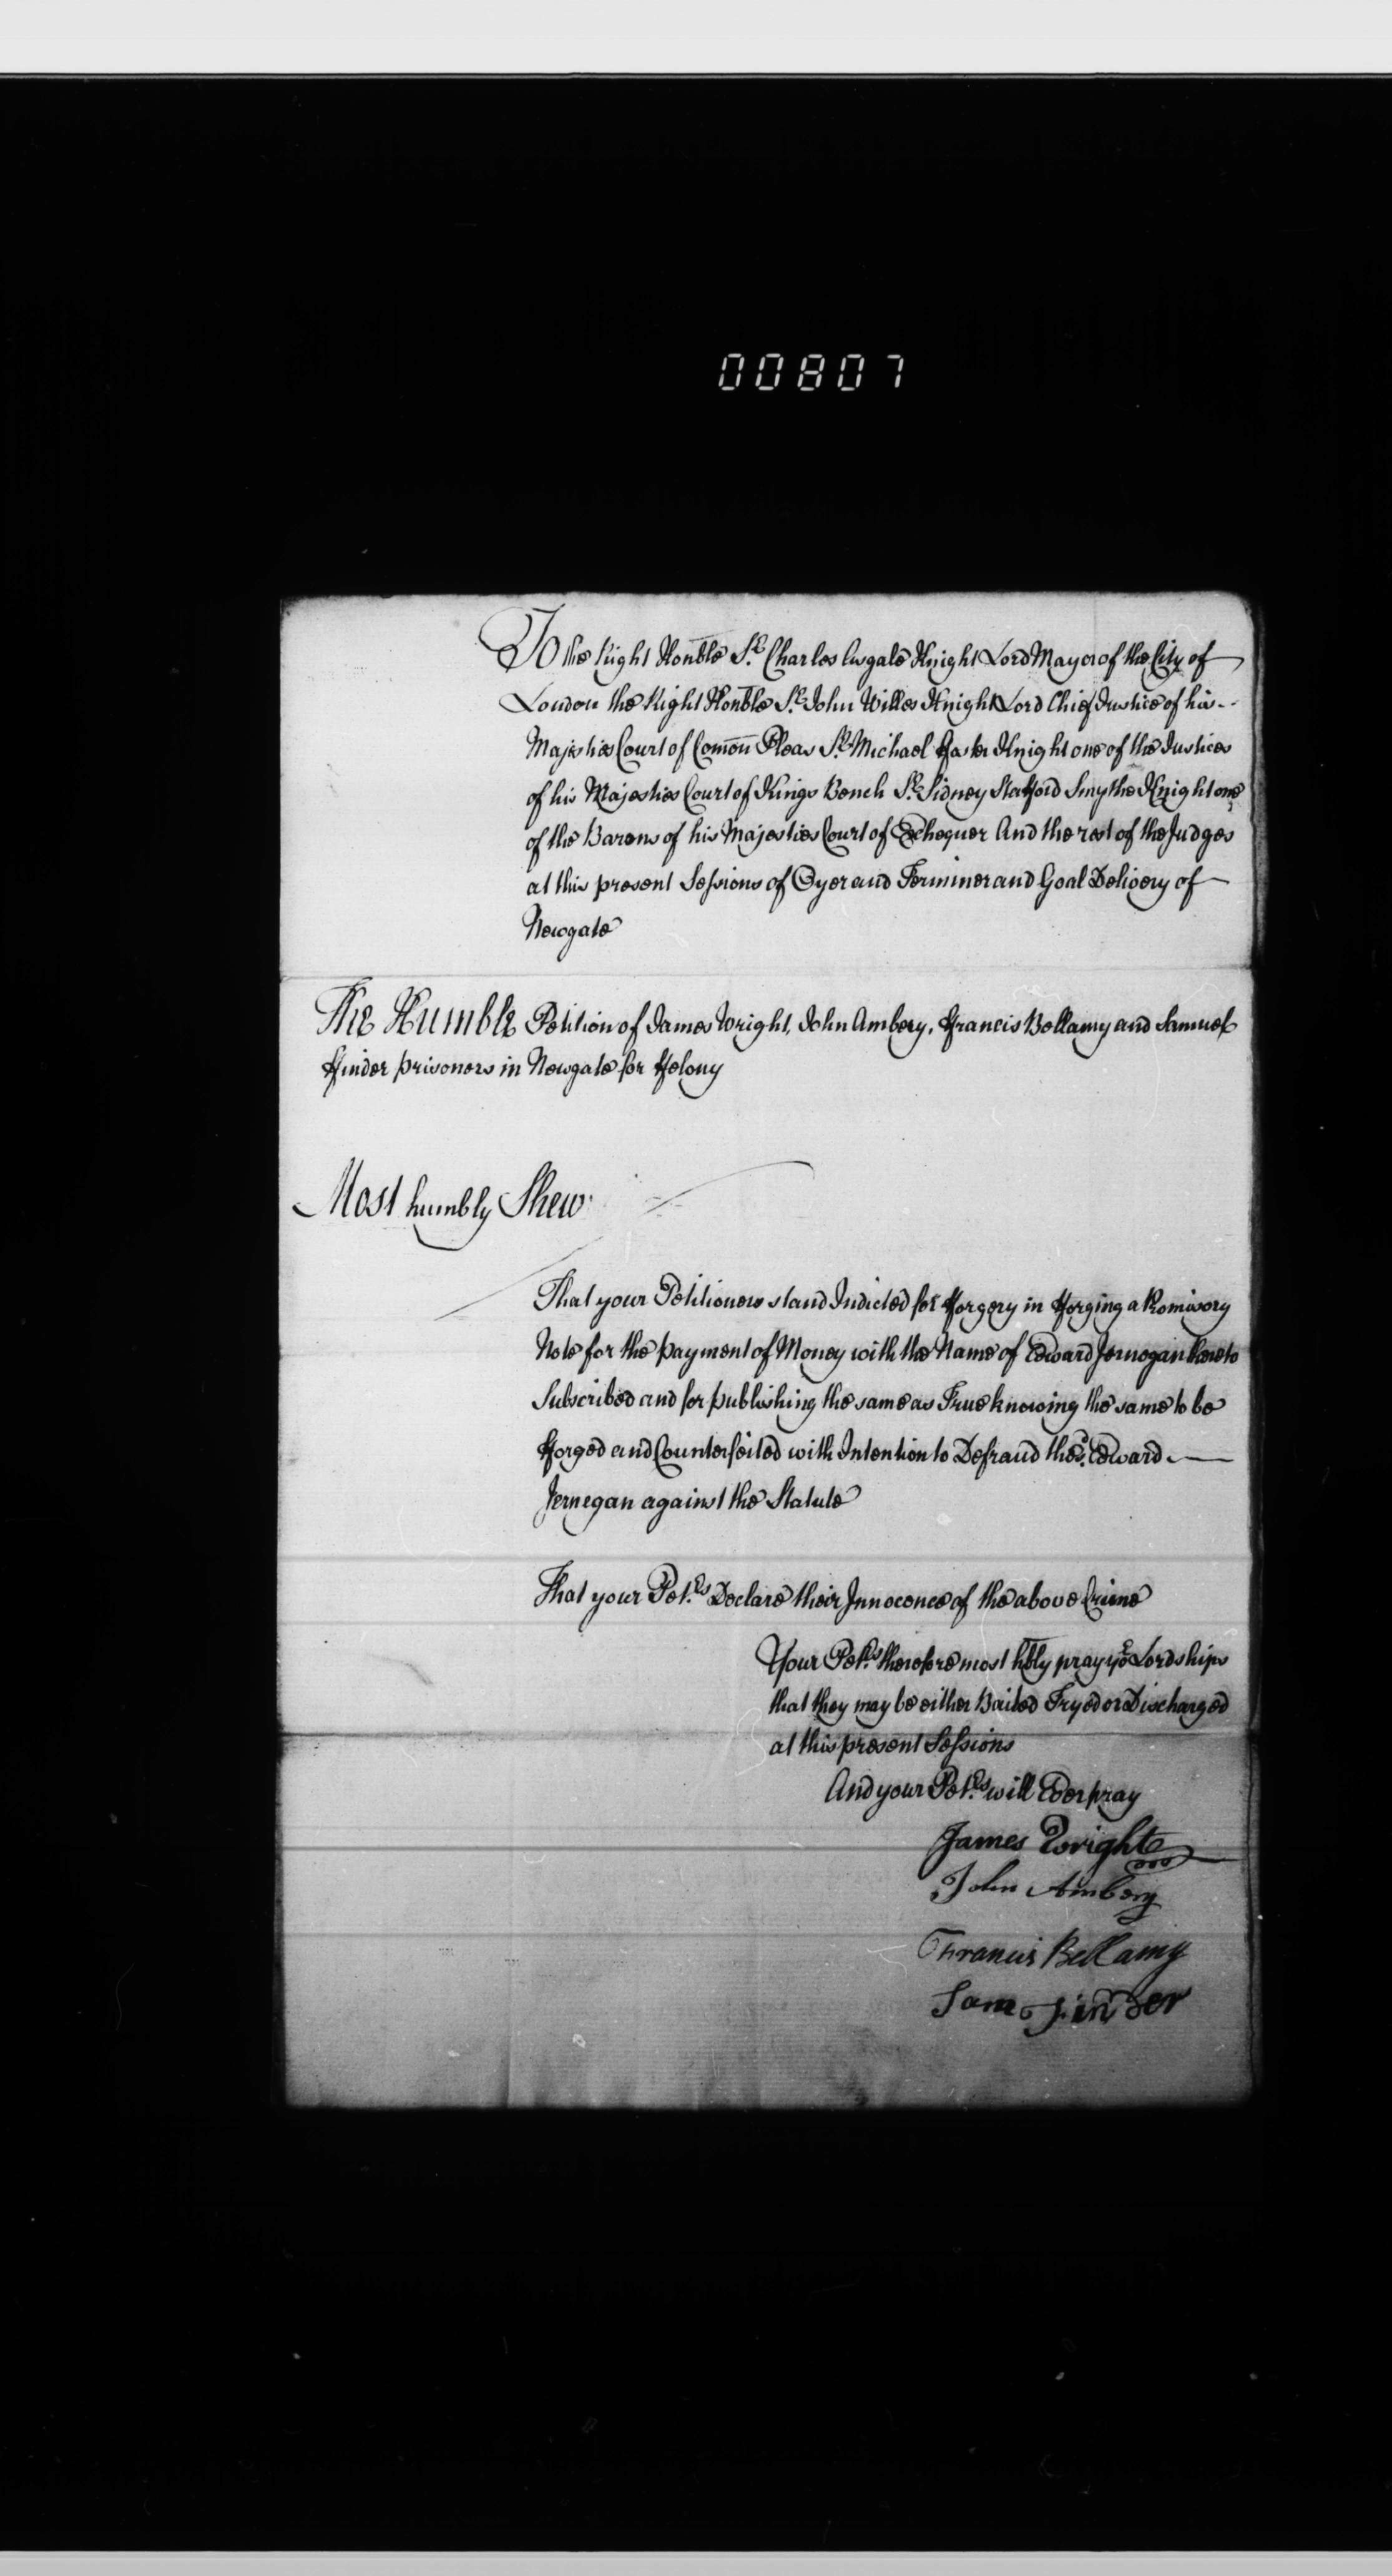 00807
To the Right Honble Sr. Charles Asgale Knight Lord Mayor of the City of
London the Right Honble Sr. John Willes Knight Lord Chief Justice of his
Majesties Court of Comon Pleas Sr. Michael Foster Knight one of the Justices
of his Majesties Court of Kings Bench Sr. Sidney Stafford Smythe Knight one
of the Barons of his Majesties Court of Exchequer And the rest of the Judges
at this present Sessions of Oyer and Terminer and Goal Delivery of
Newgate
The Humble Petition of James Wright, John Ambery, Francis Bellamy and Samuel
ffinder prisoners in Newgate for ffelony
Most humbly Shew
That your Petitioners stand Indicted for fforgery in fforging a Promisory
Note for the payment of Money with the Name of Edward Jernegan thereto
Subscribed and for publishing the same as True knowing the same to be
fforged and Counterfeited with Intention to Defraud the sd. Edward
Jernegan against the Statute
That your Petrs. Declare their Innocence of the above Crime
Your Petrs. therefore most hbly pray yor Lordships
that they may be either Bailed Tryed or Discharged
at this present Sessions
And your Petrs. will Ever pray
James Wright
John Ambery
Francis Bellamy
Sam Finder